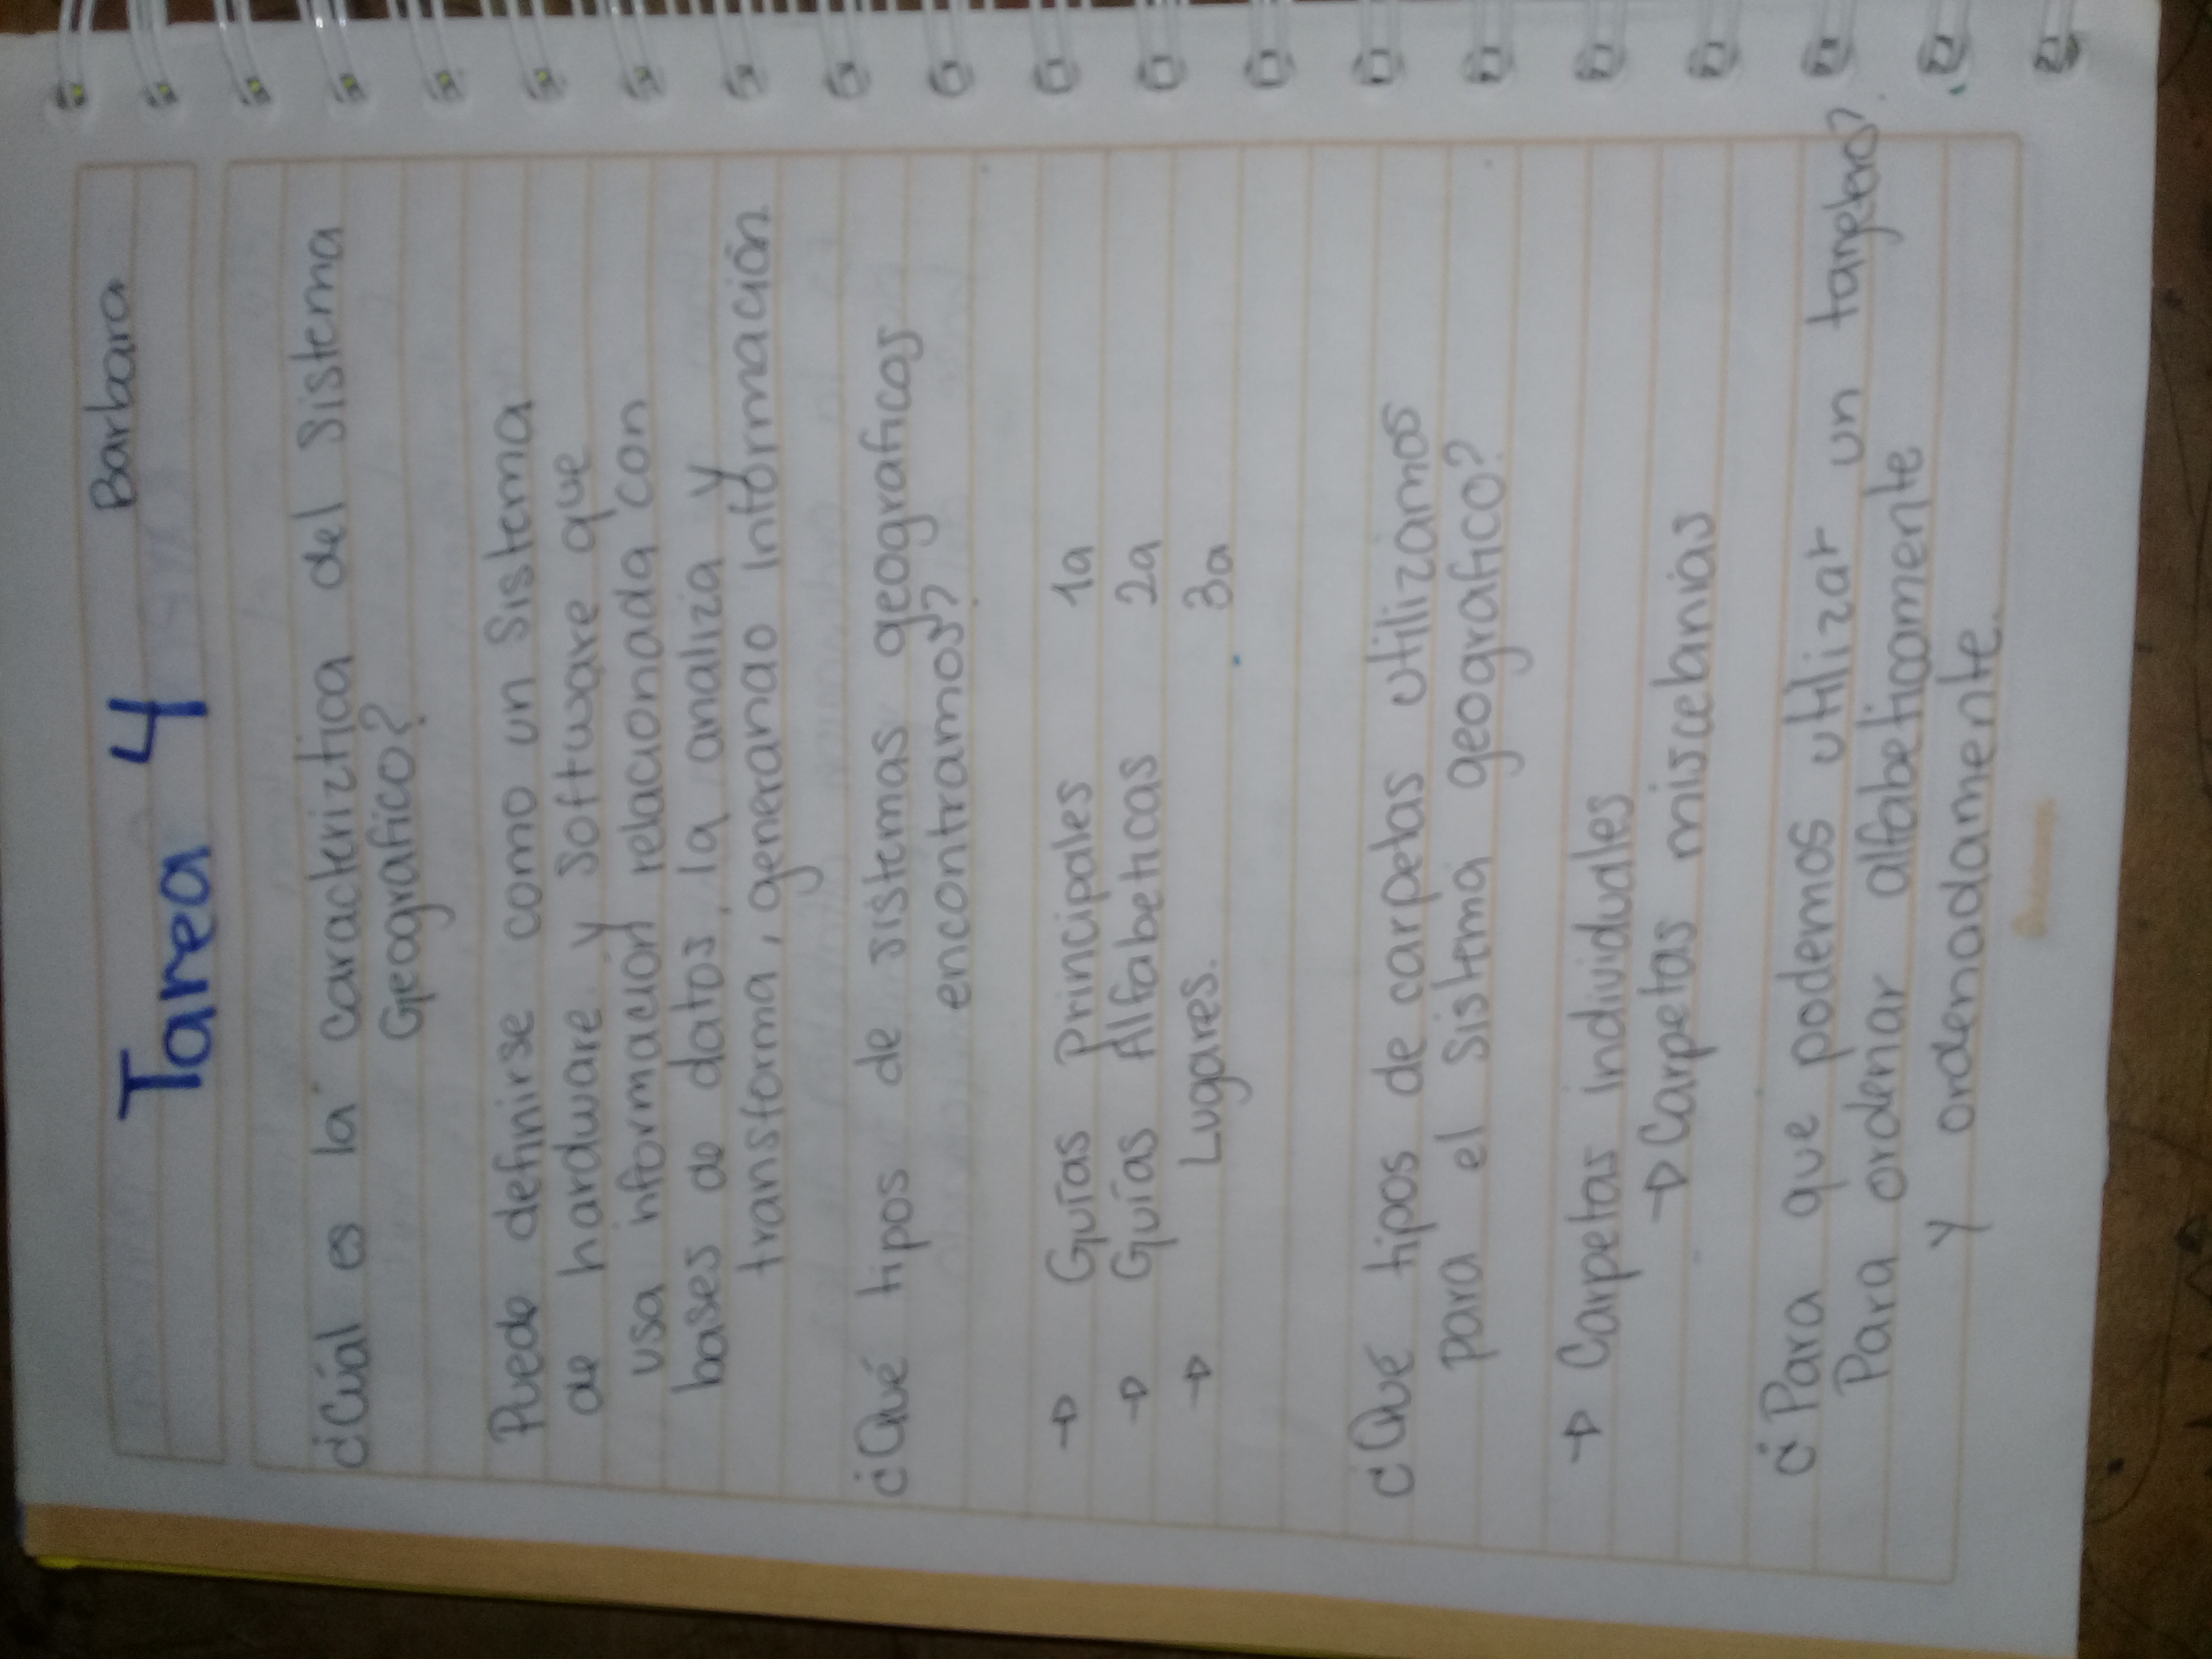 Tarea 4 Barbara
¿Cúal es la caracteriztica del Sistema
Geografico?
Puede definirse como un Sistema
de hardware y Software que
usa información relacionada con
bases de datos, la analiza y
transforma, generando información
¿Qué tipos de sistemas geograficos
encontramos?
→ Guías Principales 1a
→ Guías Alfabeticas 2a
→ Lugares. 3a
¿Qué tipos de carpetas utilizamos
para el Sistema geografico?
→ Carpetas individuales
→ Carpetas miscebanias
¿Para que podemos utilizar un tarjetero?
Para ordenar alfabeticamente
y ordenadamente.